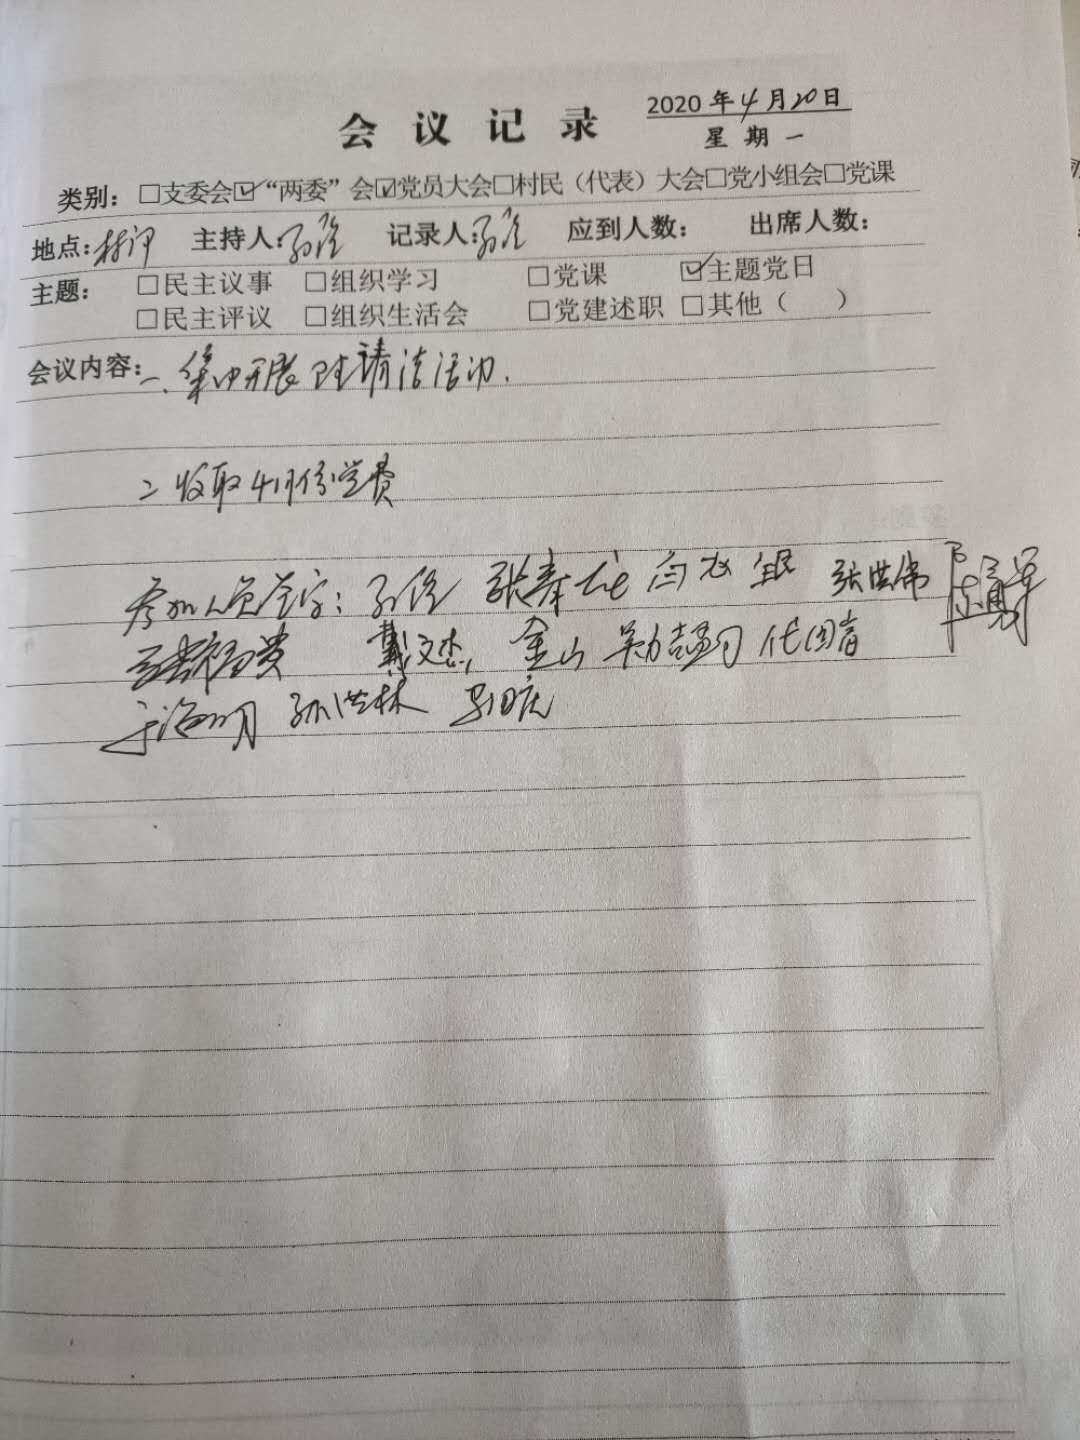 2020年4月20日
会议记录
星期一
类别：□支委会☑“两委”会☑党员大会□村民（代表）大会□党小组会□党课
地点：村部 主持人： 记录人： 应到人数： 出席人数：
主题： □民主议事 □组织学习 □党课 ☑主题党日
□民主评议 □组织生活会 □党建述职 □其他（ ）
会议内容：一、集中开展卫生清洁活动.
二 收取4月份党费
参加人员签字： 张洪伟
戴文杰 金山 代国春
于海明 孙洪林